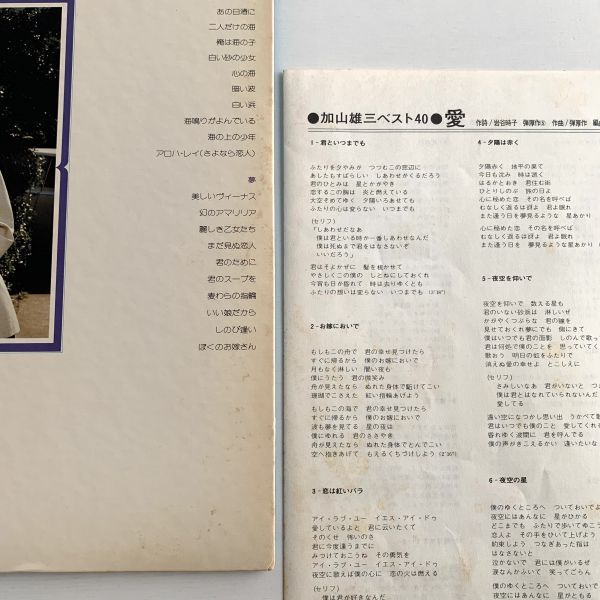 あの日渚に
二人だけの海
俺は海の子
白い砂の少女
心の海
暗い波
白い浜
海鳴りがよんでいる
海の上の少年
アロハ・レイ(さよなら恋人)
夢
美しいヴィーナス
幻のアマリリア
麗しき乙女たち
まだ見ぬ恋人
君のために
君のスープを
麦わらの指輪
いい娘だから
しのび逢い
ぼくのお嫁さん
●加山雄三ベスト40●愛 作詩/岩谷時子 弾厚作⑤ 作曲/弾厚作
1-君といつまでも
ふたりを夕やみが つつむこの窓辺に
あしたもすばらしい しあわせがくるだろう
君のひとみは 星とかがやき
恋するこの胸は 炎と燃えている
大空そめてゆく 夕陽いろあせても
ふたりの心は変らない いつまでも
(セリフ)
「しあわせだなあ
僕は君といる時が一番しあわせなんだ
僕は死ぬまで君をはなさないぞ
いいだろう」
君はそよかぜに 髪を梳かせて
やさしくこの僕の しとねにしておくれ
今宵も日が昏れて 時は去りゆくとも
ふたりの想いは変らない いつまでも
2-お嫁においで
もしもこの舟で 君の幸せ見つけたら
すぐに帰るから 僕のお嫁においで
月もなく淋しい 暗い夜も
僕にうたう 君の微笑み
舟が見えたなら ぬれた身体で駈けてこい
珊瑚でこさえた 紅い指輪あげよう
もしもこの海で 君の幸せ見つけたら
すぐに帰るから 僕のお嫁においで
波も夢を見てる 星の夜は
僕にゆれる 君のささやき
舟が見えたなら ぬれた身体でとんでこい
空へ抱きあげて もえるくちづけしよう
3-恋は紅いバラ
アイ・ラブ・ユー イエス・アイ・ドゥ
愛しているよと 君に云いたくて
そのくせ 怖いのさ
君に今度逢うまでに
みつけておこうね その勇気を
アイ・ラブ・ユー イエス・アイ・ドゥ
夜空に歌えば僕の心に 恋の火は燃える
(セリフ)
「僕は君が好きなんだ
4-夕陽は赤く
夕陽赤く 地平の果て
今日も沈み 時は逝く
はるかとおき 君住む街
ひとりしのぶ 旅の日よ
心に秘めた恋 その名を呼べば
むなしく返るは谺よ 君よ眠れ
また逢う日を夢見るような 星あかり
心に秘めた恋 その名を呼べば
むなしく返るは谺よ 君よ眠れ
また逢う日を 夢見るような星あかり
5-夜空を仰いで
夜空を仰いで 数える星も
君のいない砂浜は 淋しいぜ
かがやくつぶらな 君の瞳を
見せておくれ夢にでも 側にきて
僕はいつでも君の面影 しのんで歌って
君は何処で僕のことを 思っていてく
歌おう 明日の虹をふたりで
消えぬ愛の幸せよ とこしえに
(セリフ)
さみしいなあ 君がいないと
僕は君とはなれていられないんだ
愛してる
遠い空になつかし思い出 うかべて
君はいつでも僕のこと 愛してくれる
昏れゆく波間に 君を呼んでる
僕の声がきこえるかい 逢いたいな
6-夜空の星
僕のゆくところへ ついておいでよ
夜空にはあんなに 星がひかる
どこまでも ふたりで歩いてゆこう
恋人よ その手をひいて上げよう
約束しよう つなぎあった指は
はなさないと
泣かないで 君には僕がいるぜ
涙なんかふいて 笑ってごらん
僕のゆくところへ ついておいで
夜空にはあんなに 星がひかる